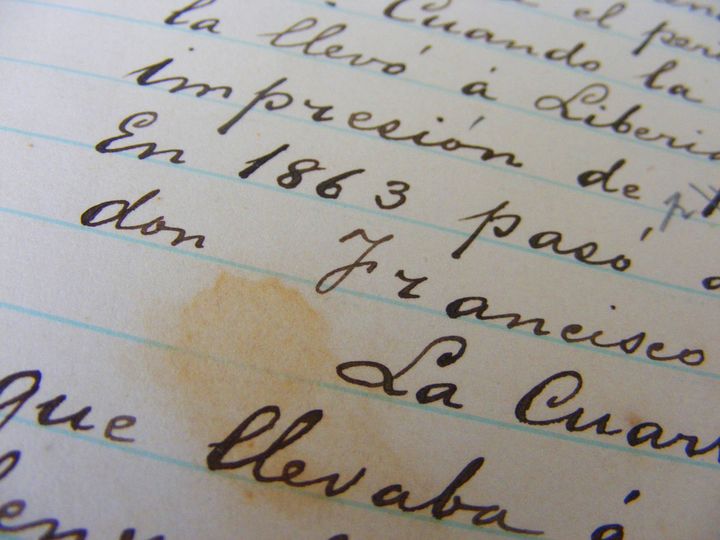 el
Cuando la
la llevó á Liberia
impresión de
En 1863 pasó
don Francisco
La
que llevaba á